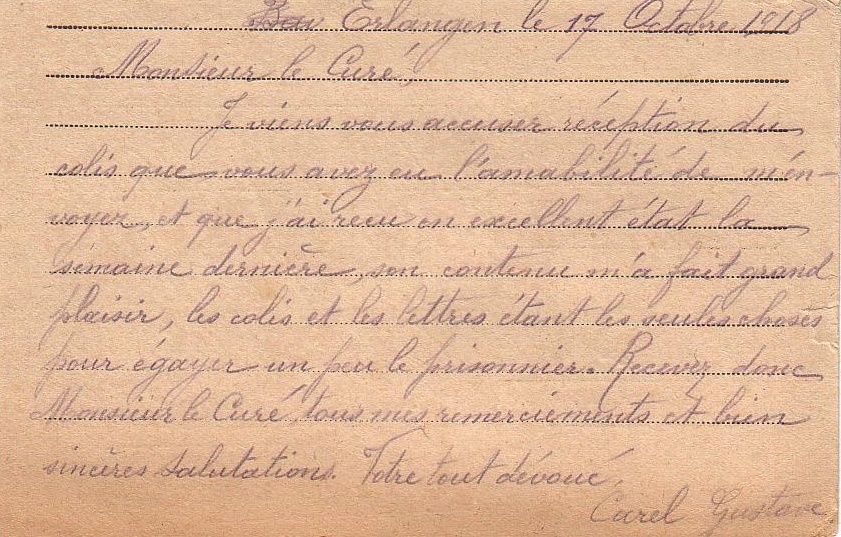 Erlangen le 17 Octobre 1918
Monsieur le Curé,
Je viens vous accuser réception du
colis que vous avez eu l'amabilité de m'en-
voyez, et que j'ai recu en excellent état la
semaine dernière, son contenu m'a fait grand
plaisir, les colis et les lettres étant les seules choses
pour égayer un peu le prisonnier. Recevez donc
Monsieur le Curé, tous mes remerciements et bien
sincères salutations. Votre tout dévoué,
Carel Gustave